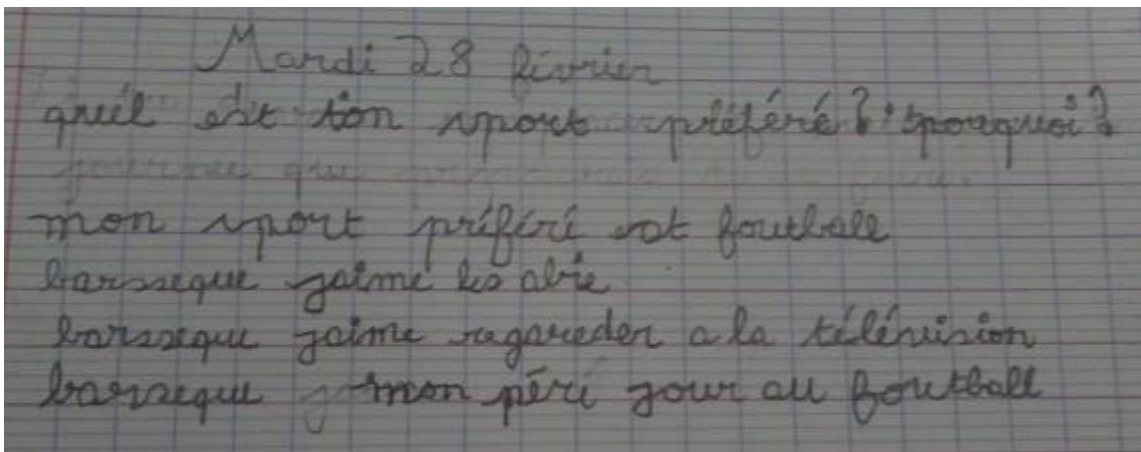 Mardi 28 février
quél est ton sport préféré? pourquoi?
mon sport préféré est foutball
barsseque jaime les abie
barsseque jaime regareder a la télévision
barsseque mon péré jour au foutball